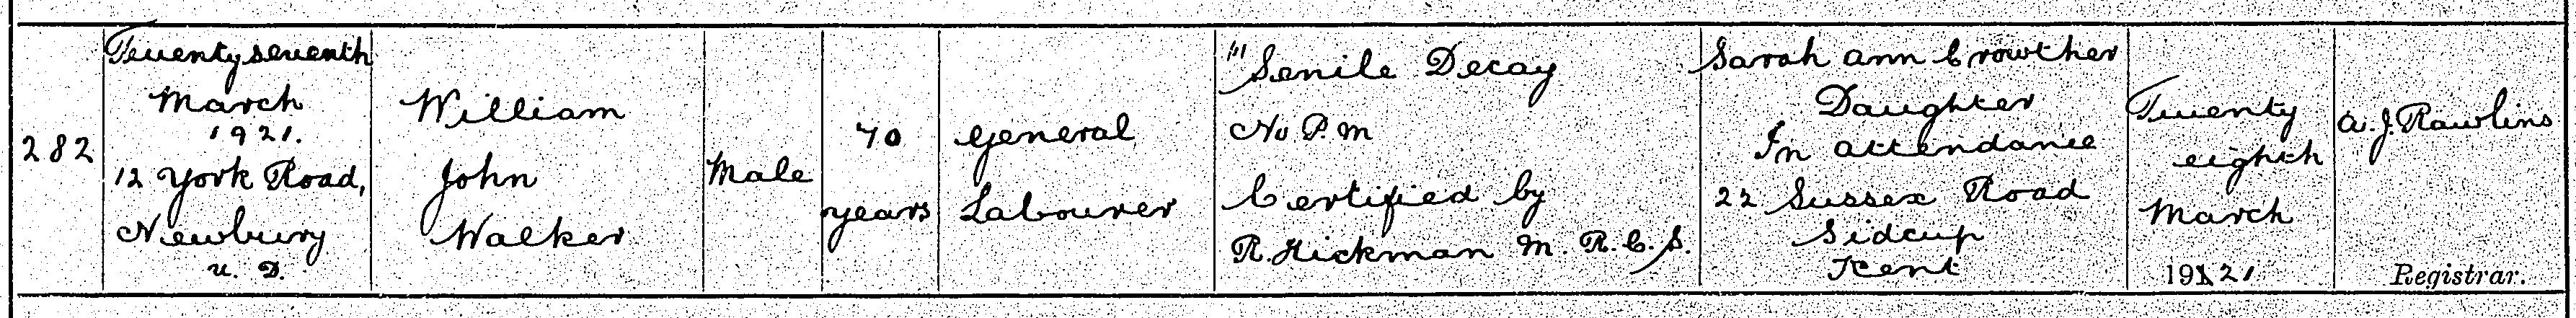 282
Twenty seventh
March
1921.
12 York Road,
Newbury
U. D.
William
John
Walker
Male
70
years
General
Labourer
"Senile Decay
No P.M
Certified by
R. Hickman M. R. C. S.
Sarah Ann Crowther
Daughter
In attendance
22 Sussex Road
Sidcup
Kent
Twenty
eighth
March
1921
A. J. Rawlins
Registrar.